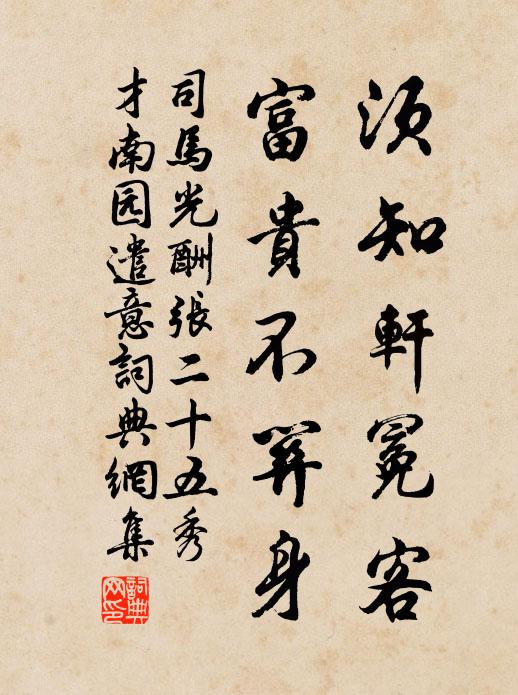 須知軒冕客
富貴不身
司馬光酬張二十五秀
才南园遣意詞典網集
詞典
网印